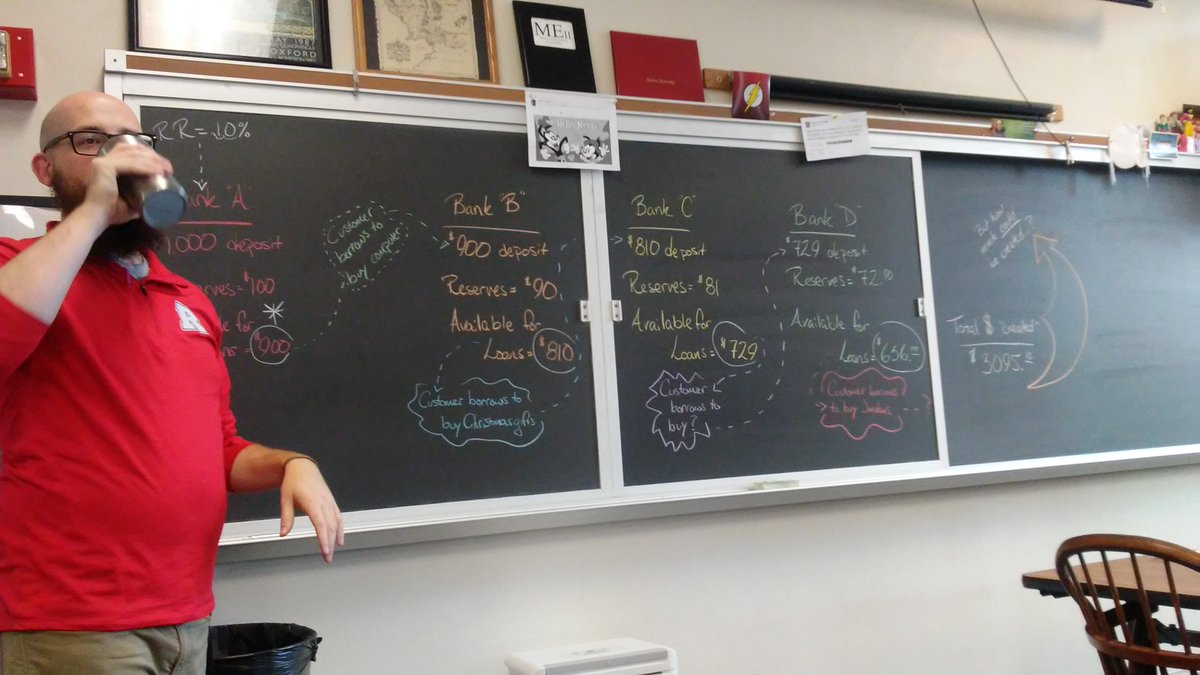 MAY 1987
OXFORD
ME II
RR = 10%
Bank "A"
1,000 deposit
Reserves = $100
Available for
Loans = $900
Customer
borrows to
buy computer
Bank "B"
$900 deposit
Reserves = $90
Available for
Loans = $810
Customer borrows to
buy Christmas gifts
Bank "C"
$810 deposit
Reserves = $81
Available for
Loans = $729
Customer
borrows to
buy?
Bank "D"
$729 deposit
Reserves = $72.90
Available for
Loans = $656.
Customer borrows
to buy
?
Total $ "created"
$3095.